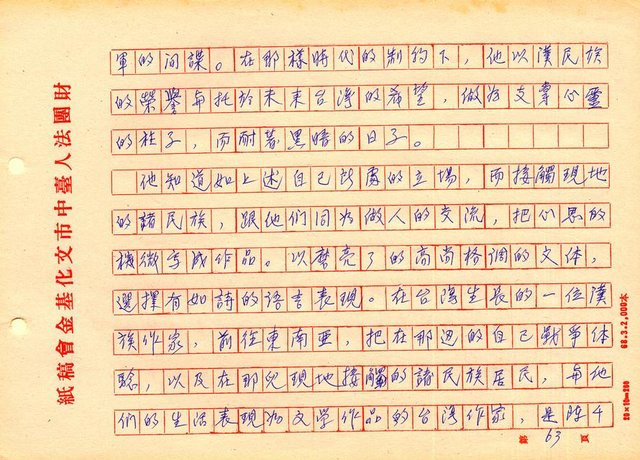 軍的间諜。在那樣時代的制约下，他以漢民族
的榮譽與托於未来台湾的希望，做为支尊心靈
的柱子，而耐著黑暗的日子。
他知道如上述自己所處的立場，而接觸現地
的諸民族，跟他们同为做人的交流，把心思的
機微寫成作品。以磨亮了的高尚格调的文体，
選擇有如詩的语言表現。在台湾生長的一位漢
族作家，前往東南亜，把在那边的自己戰爭体
驗，以及在那兒現地接觸的諸民族居民，與他
们的生活表現为文学作品的台湾作家，是陳千
第 63 頁
財團法人臺中市文化基金會稿紙
68.3.2,000本
20×10=200